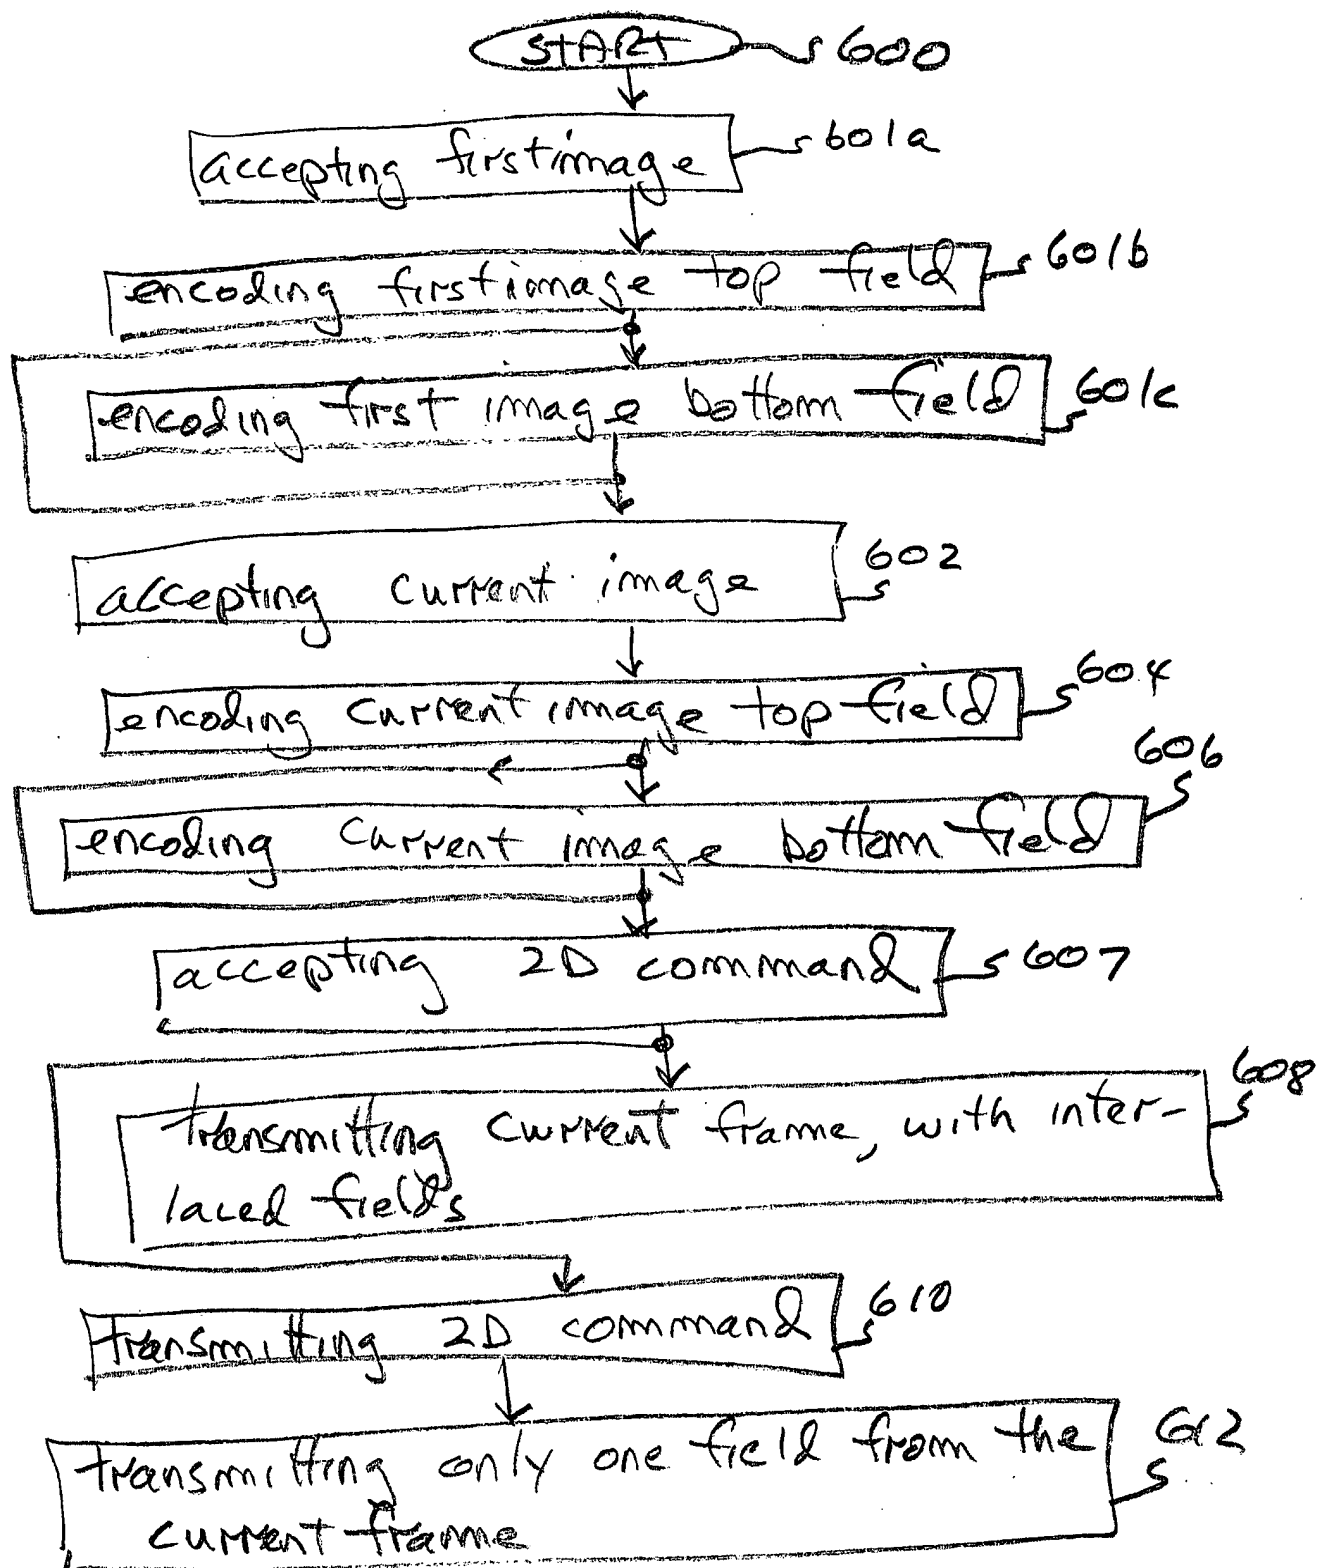 START 600
accepting first image 601a
encoding first image top field 601b
encoding first image bottom field 601c
accepting current image 602
encoding current image top field 604
encoding current image bottom field 606
accepting 2D command 607
transmitting current frame, with inter- 608
laced fields
transmitting 2D command 610
transmitting only one field from the 612
current frame